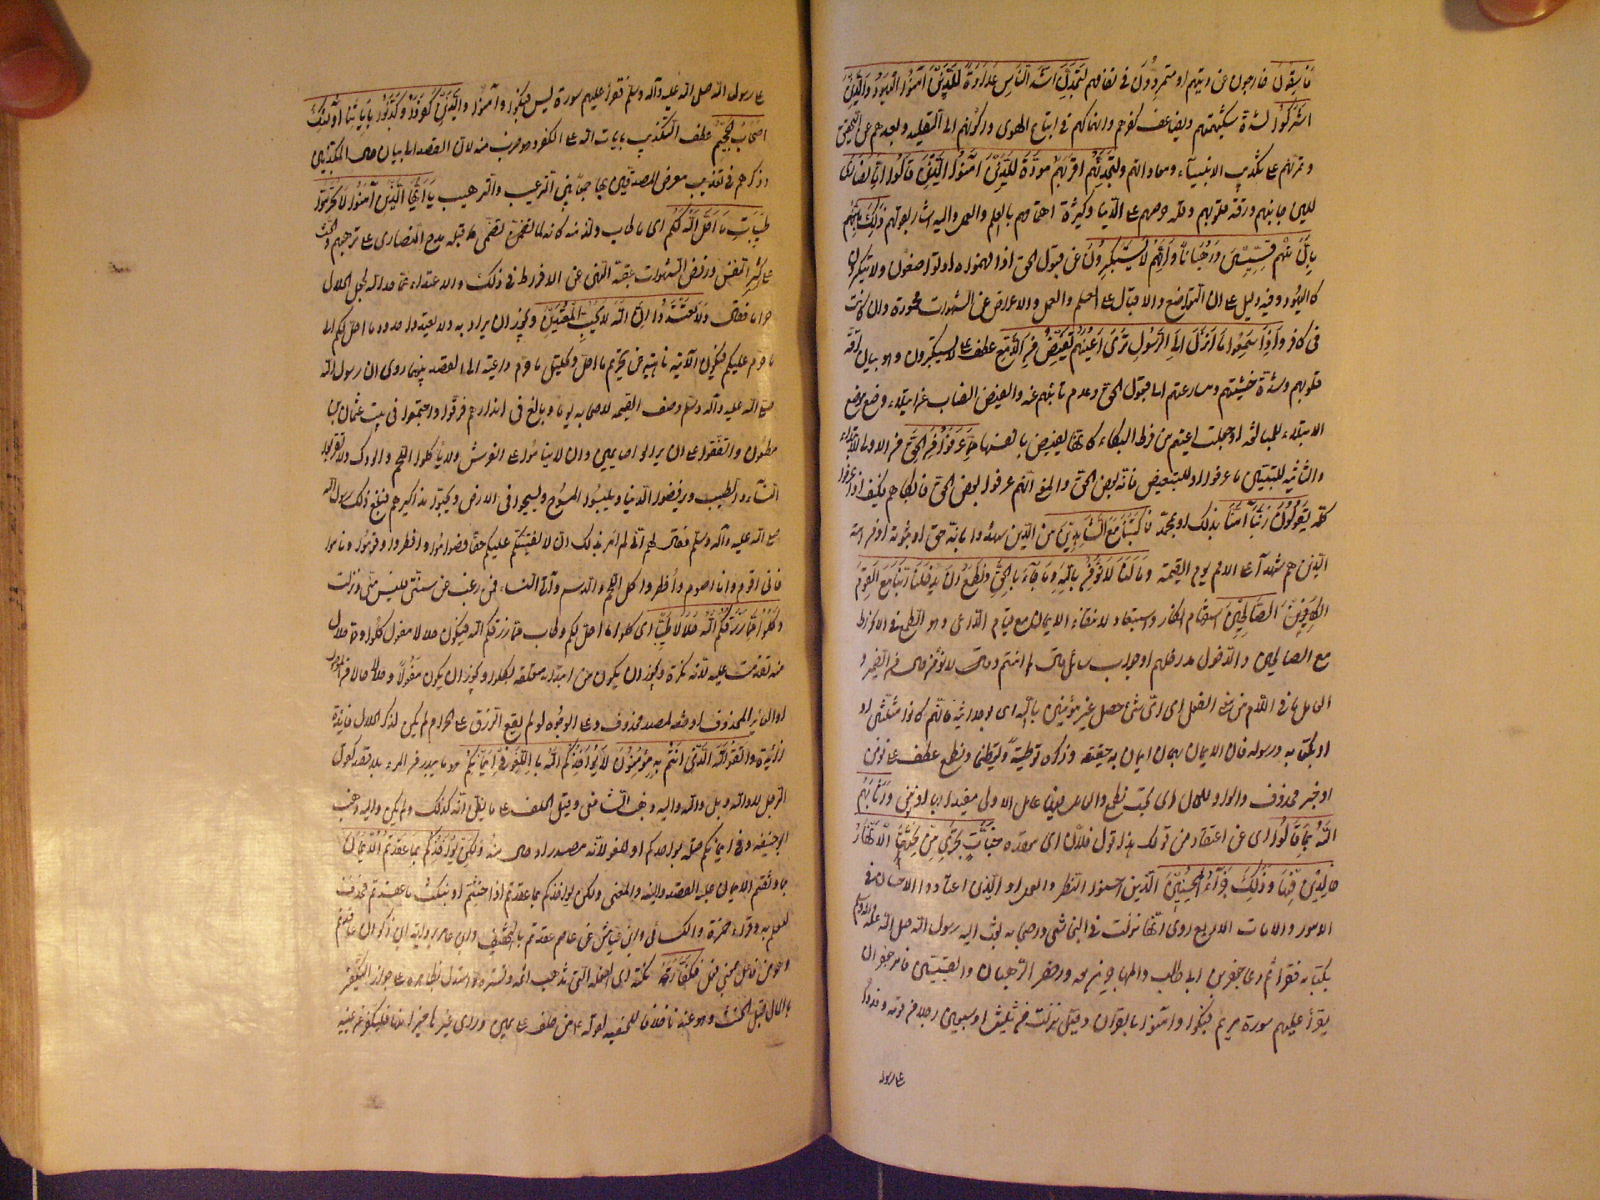 فاسقون خارجون عن دينهم او متمردون في نفاقهم لتجدن اشد الناس عداوة للذين آمنوا اليهود والذين
اشركوا لشدة شكيمتهم وتضاعف كفرهم وانهماكهم في اتباع الهوى وركونهم الى التقليد وبعدهم عن التحقيق
وتمرنهم على تكذيب الانبياء ومعاداتهم ولتجدن اقربهم مودة للذين آمنوا الذين قالوا انا نصارى
للين جانبهم ورقة قلوبهم وقلة حرصهم على الدنيا وكثرة اهتمامهم بالعلم والعمل واليه اشار بقوله ذلك بانهم
بان منهم قسيسين ورهبانا وانهم لا يستكبرون عن قبول الحق اذا فهموه او يتواضعون ولا يتكبرون
كاليهود وفيه دليل على ان التواضع والاقبال على العلم والعمل والاعراض عن الشهوات محمودة وان كانت
في كافر واذا سمعوا ما انزل الى الرسول ترى اعينهم تفيض من الدمع عطف على لا يستكبرون وهو بيان لرقة
قلوبهم وشدة خشيتهم ومسارعتهم الى قبول الحق وعدم تأبيهم عنه والفيض انصباب عن امتلاء فوضع موضع
الامتلاء للمبالغة او جعلت اعينهم من فرط البكاء كانها تفيض بانفسها مما عرفوا من الحق من الاولى للابتداء
والثانية للتبيين ما عرفوا او للتبعيض فانه بعض الحق والمعنى انهم عرفوا بعض الحق فابكاهم فكيف اذا عرفوا
كله يقولون ربنا آمنا بذلك او بمحمد فاكتبنا مع الشاهدين من الذين شهدوا بانه حق او بنبوته او من امته
الذين هم شهداء على الامم يوم القيمة وما لنا لا نؤمن بالله وما جاءنا من الحق ونطمع ان يدخلنا ربنا مع القوم
الصالحين استفهام انكار واستبعاد لانتفاء الايمان مع قيام الداعي وهو الطمع في الانخراط
مع الصالحين والدخول مدخلهم او جواب سائل قال لم آمنتم ولا نؤمن حال من الضمير و
العامل ما في اللام من معنى الفعل اي اي شئ حصل لنا غير مؤمنين بالله اي بوحدانيته فانهم كانوا مثلثين او
او بكتابه ورسوله فان الايمان بهما ايمان به حقيقة وذكره توطئة وتعظيما ونطمع عطف على نؤمن
او خبر محذوف والواو للحال اي ونحن نطمع والعامل فيها عامل الاولى مقيدا بها او نؤمن فاثابهم
الله بما قالوا اي عن اعتقاد من قولك هذا قول فلان اي معتقده جنات تجري من تحتها الانهار
خالدين فيها وذلك جزاء المحسنين الذين احسنوا النظر والعمل او الذين اعتادوا الاحسان في
الامور والايات الاربع روى انها نزلت في النجاشي واصحابه بعث اليه رسول الله صلى الله عليه وآله وسلم
بكتابه فقرأه ثم دعا جعفر بن ابي طالب والمهاجرين معه واحضر الرهبان والقسيسين فامر جعفر ان
يقرأ عليهم سورة مريم فبكوا وآمنوا بالقرآن وقيل نزلت في ثلثين او سبعين رجلا من قومه وفدوا
على رسول
على رسول الله صلى الله عليه وآله وسلم فقرأ عليهم سورة يس فبكوا وآمنوا والذين كفروا وكذبوا باياتنا اولئك
اصحاب الجحيم عطف التكذيب بايات الله على الكفر وهو ضرب منه لان القصد الى بيان حال المكذبين
وذكرهم في معرض المصدقين بها جمعا بين الترغيب والترهيب يا ايها الذين آمنوا لا تحرموا
طيبات ما احل الله لكم اي ما طاب ولذ منه كانه لما تضمن ما قبله مدح النصارى على ترهبهم والحث
على كسر النفس ورفض الشهوات عقبه النهي عن الافراط في ذلك والاعتداء عما حد الله بجعل الحلال
حراما فقال ولا تعتدوا ان الله لا يحب المعتدين ويجوز ان يراد به ولا تعتدوا حدود ما احل لكم الى
ما حرم عليكم فيكون الآية ناهية عن تحريم ما احل وتحليل ما حرم داعية الى القصد بينهما روى ان رسول الله
صلى الله عليه وآله وسلم وصف القيمة لاصحابه يوما وبالغ في انذارهم فرقوا واجتمعوا في بيت عثمان بن
مظعون واتفقوا على ان يزالوا صائمين وان لا يناموا على الفرش ولا يأكلوا اللحم والودك ولا يقربوا
النساء والطيب ويرفضوا الدنيا ويلبسوا المسوح ويسيحوا في الارض ويجبوا مذاكيرهم فبلغ ذلك رسول الله
صلى الله عليه وآله وسلم فقال لهم اني لم اؤمر بذلك ان لانفسكم عليكم حقا فصوموا وافطروا وقوموا وناموا
فاني اقوم وانام واصوم وافطر وآكل اللحم والدسم وآتي النساء فمن رغب عن سنتي فليس مني ونزلت
وكلوا مما رزقكم الله حلالا طيبا اي كلوا ما احل لكم وطاب مما رزقكم الله فيكون حلالا مفعول كلوا ومما حال
منه تقدمت عليه لانه نكرة ويجوز ان يكون من ابتدائية متعلقة بكلوا ويجوز ان يكون مفعولا وحلالا حالا من الموصول
او العائد المحذوف او صفة لمصدر محذوف وعلى الوجوه لو لم يقع الرزق على الحرام لم يكن لذكر الحلال فائدة
زائدة واتقوا الله الذي انتم به مؤمنون لا يؤاخذكم الله باللغو في ايمانكم هو ما يبدو من المرء بلا قصد كقول
الرجل لا والله وبلى والله واليه ذهب الشافعي وقيل الحلف على ما يظن انه كذلك ولم يكن واليه ذهب
ابو حنيفة وفي ايمانكم صلة يؤاخذكم او اللغو لانه مصدر او حال منه ولكن يؤاخذكم بما عقدتم الايمان
بما وثقتم الايمان عليه بالقصد والنية والمعنى ولكن يؤاخذكم بما عقدتم اذا حنثتم او بنكث ما عقدتم فحذف
للعلم به وقرأ حمزة والكسائي وابن عياش عن عاصم عقدتم بالتخفيف وابن عامر برواية ابن ذكوان عاقدتم
وهو من فاعل بمعنى فعل فكفارته فكفارة نكثه اي الفعلة التي تذهب اثمه وتستره واستدل بظاهره على جواز التكفير
بالمال قبل الحنث وهو عندنا خلافا للحنفية لقوله ع من حلف على يمين ورأى غيرها خيرا منها فليكفر عن يمينه